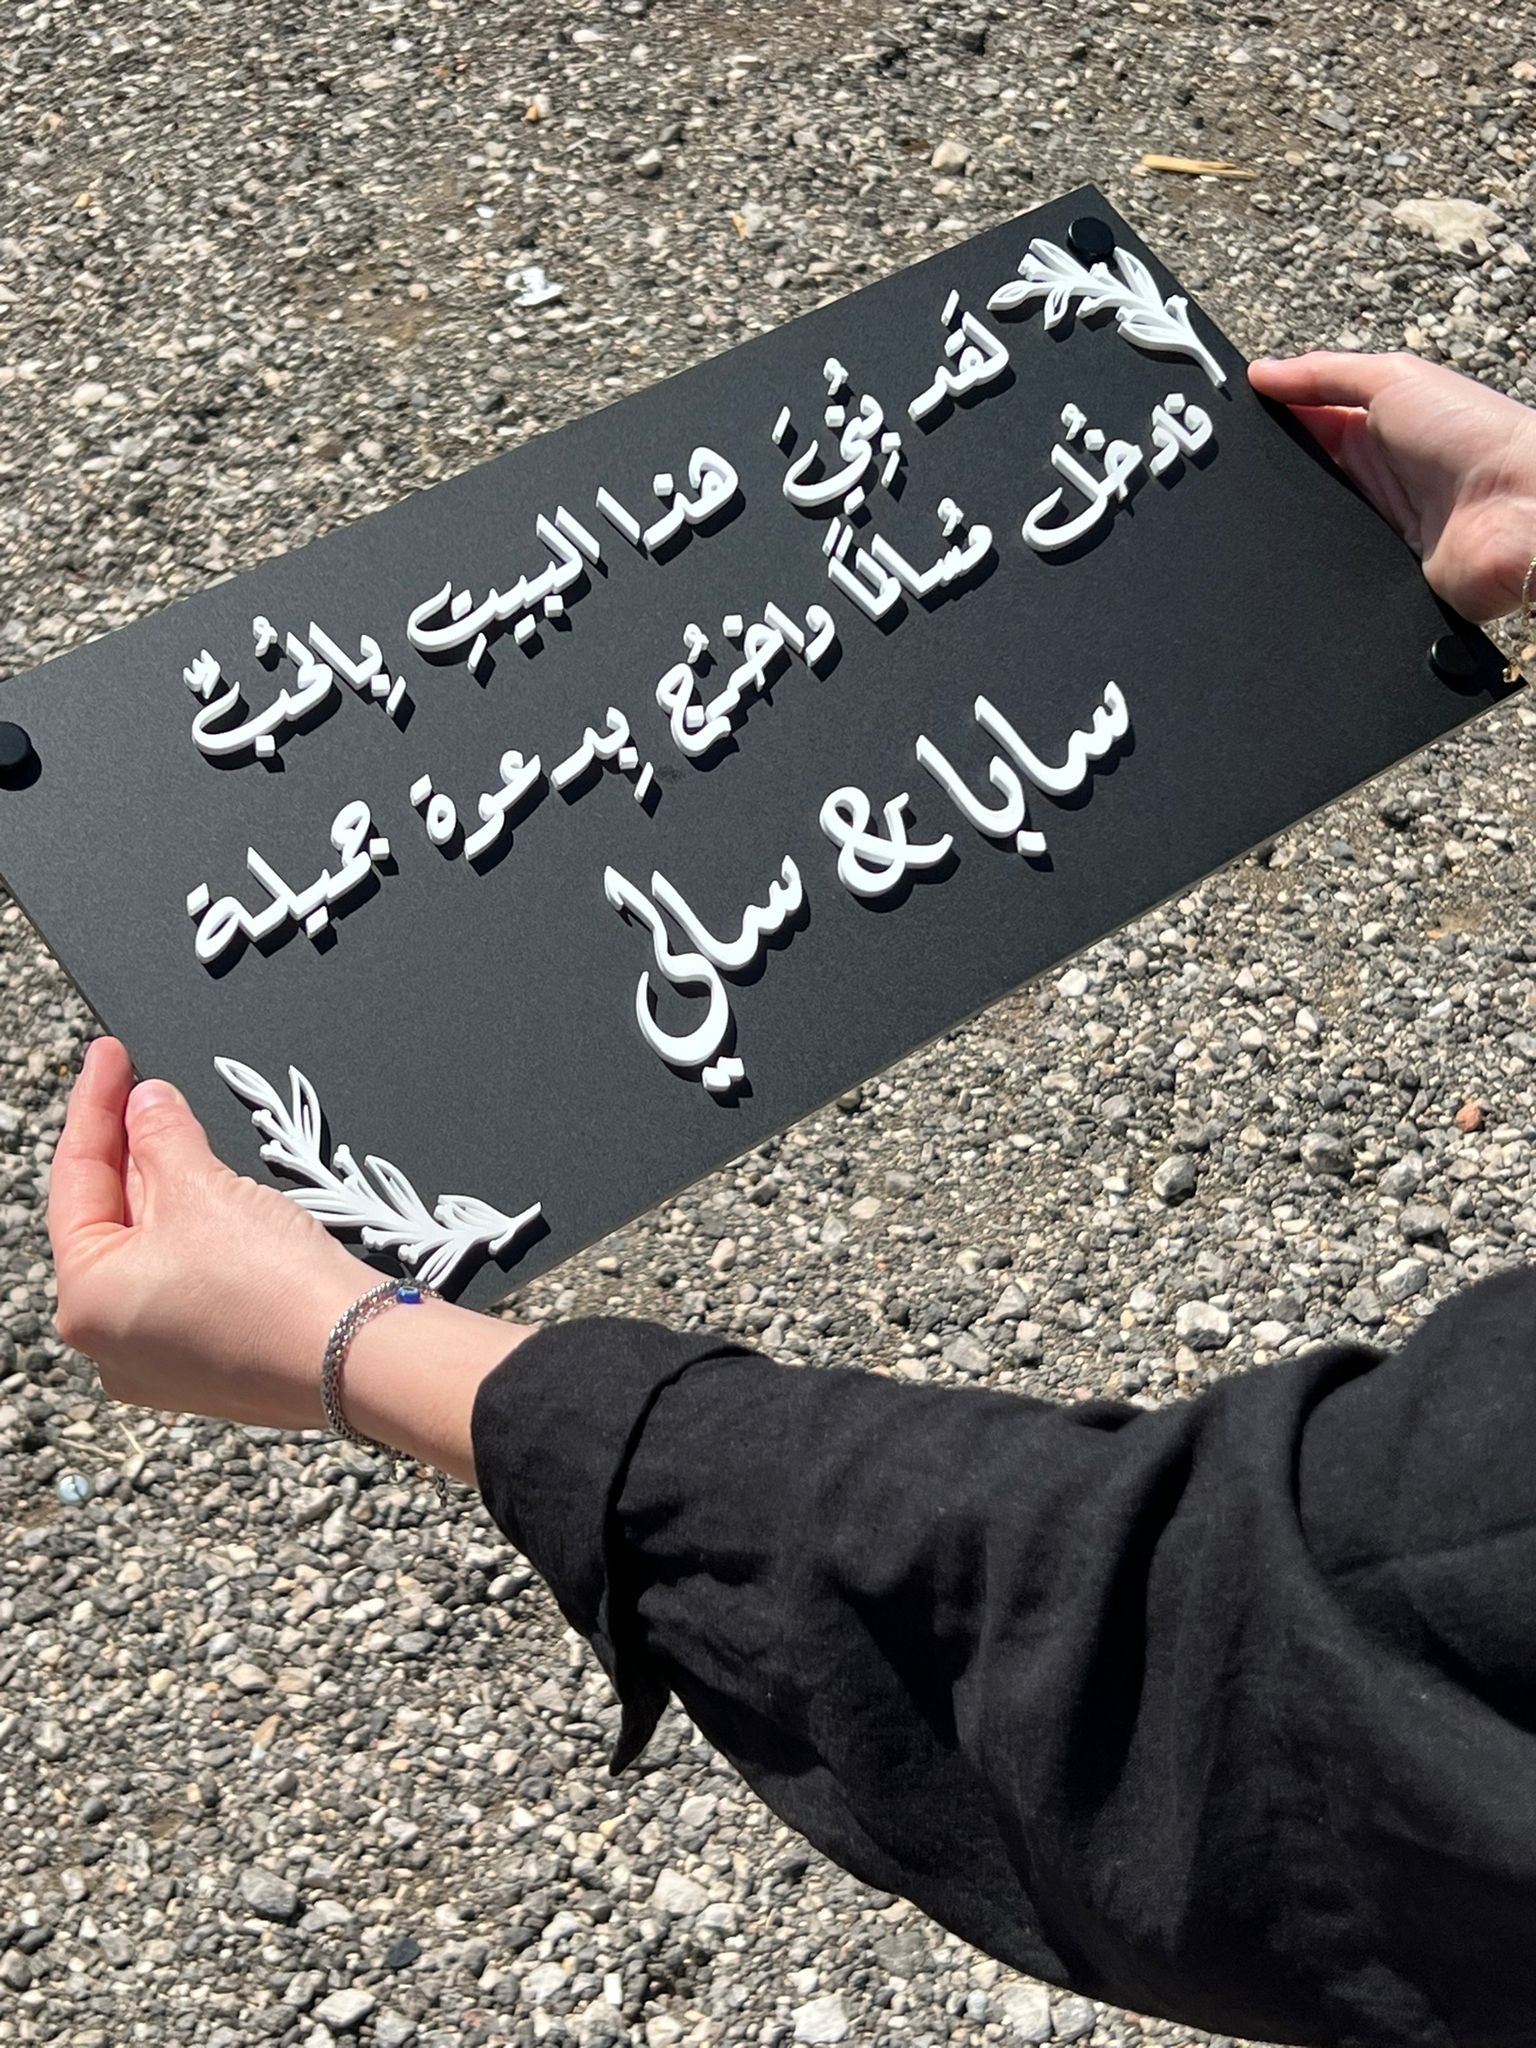 لَقَد بُنِيَ هذا البيتِ بِالحُبِّ
فادخُل مُسالمًا واخرُج بِدعوة جميلة
سابا & سالي